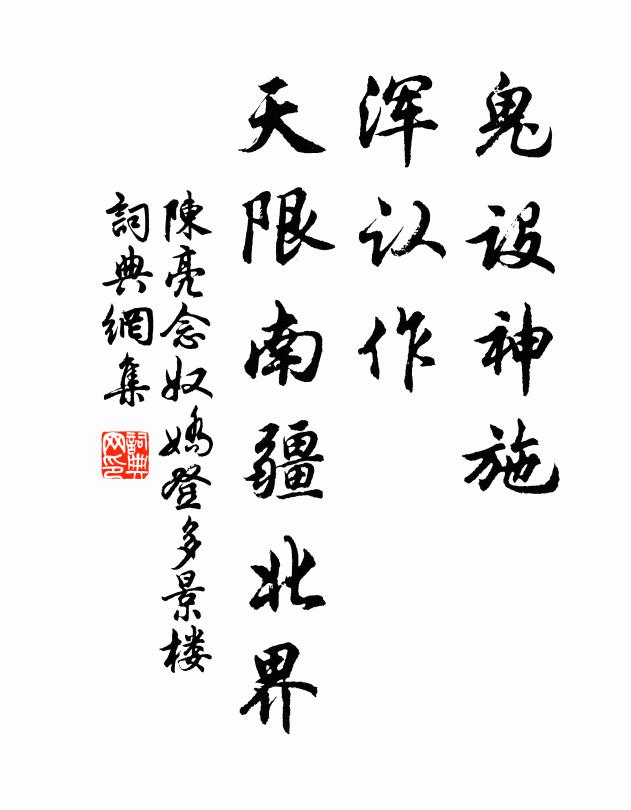 鬼设神施
浑认作
天限南疆北界
陳亮念奴嬌登多景楼
詞典網集
詞典网印